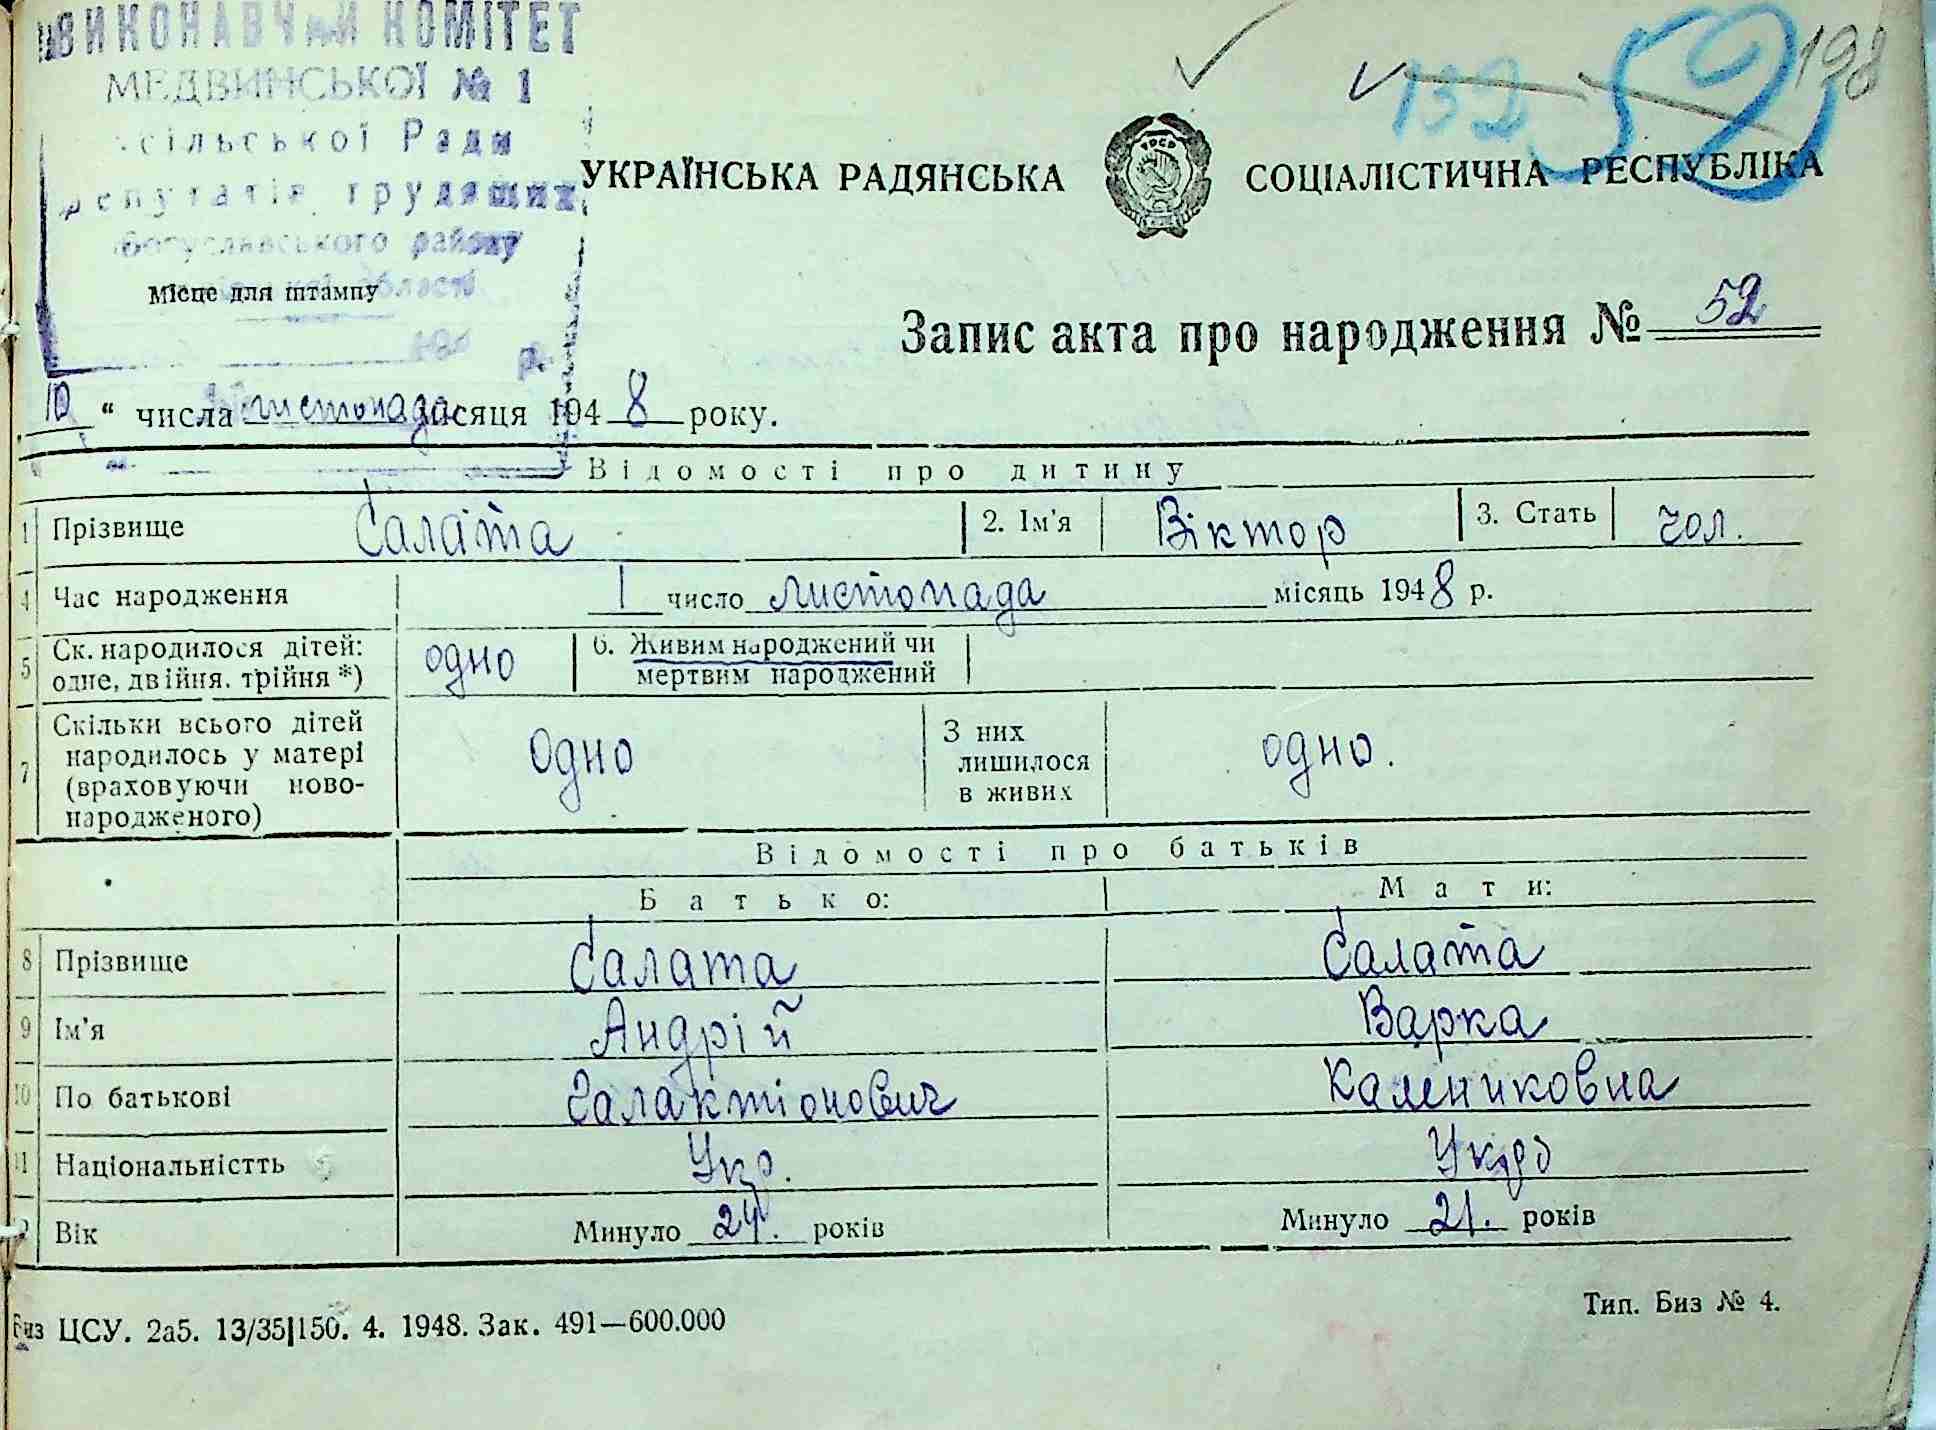 ВИКОНАВЧИЙ КОМІТЕТ
МЕДВИНСЬКОЇ № 1
сільської Ради
депутатів трудящих
Богуславського району
області
Місце для штампу
194 р.
132 52 198
УКРАЇНСЬКА РАДЯНСЬКА СОЦІАЛІСТИЧНА РЕСПУБЛІКА
УРСР
Запис акта про народження № 52
10 “ числа листопада місяця 1948 року.
Відомості про дитину
1 Прізвище Салата 2. Ім’я Віктор 3. Стать чол.
4 Час народження 1 число листопада місяць 1948 р.
5 Ск. народилося дітей: одне, двійня, трійня *) одно 6. Живим народжений чи мертвим народжений
7 Скільки всього дітей народилось у матері (враховуючи ново-народженого) одно З них лишилося в живих одно.
Відомості про батьків
Батько: Мати:
8 Прізвище Салата Салата
9 Ім’я Андрій Варка
10 По батькові Галактіонович Калениковна
11 Національністть Укр. Укр
2 Вік Минуло 24. років Минуло 21. років
Биз ЦСУ. 2а5. 13/35|150. 4. 1948. Зак. 491—600.000
Тип. Биз № 4.